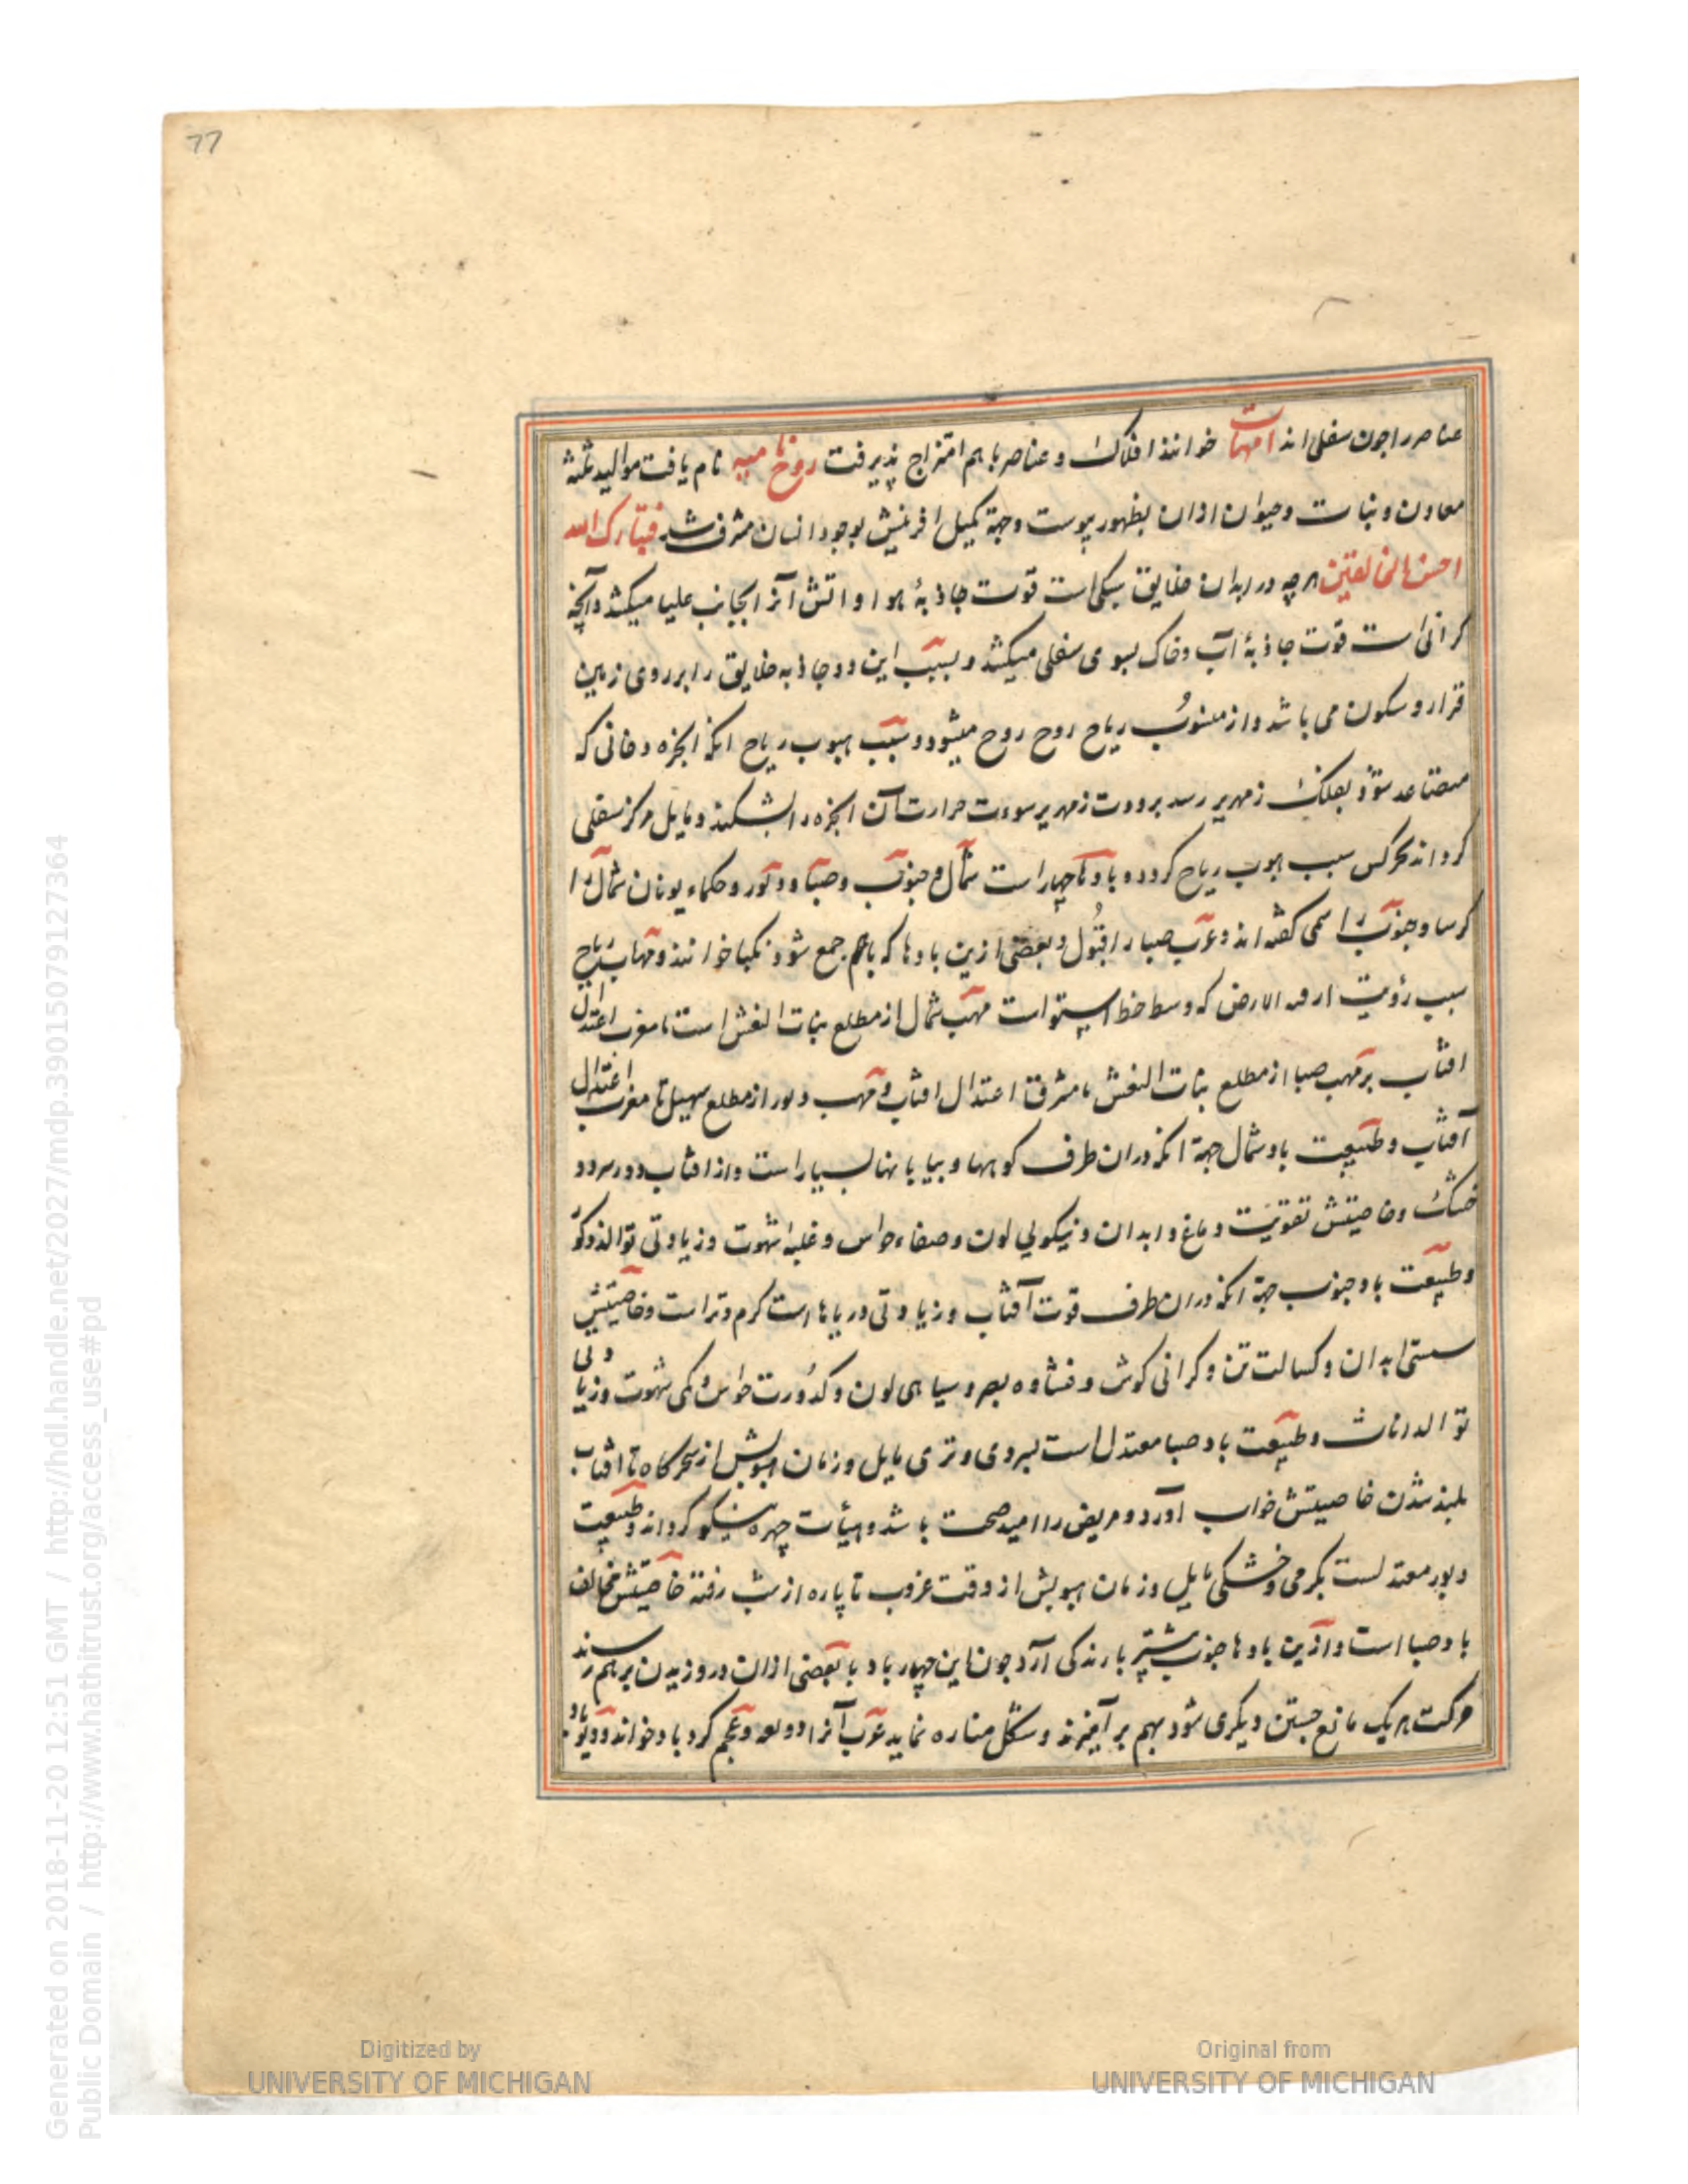 77
عناصر را چون سفلی اند امهات خوانند افلاک و عناصر با هم امتزاج پذیرفت روح نامیه نام یافت موالید ثلثه
معادن و نبات و حیوان ازان بظهور پیوست و جهة تکمیل افرینش بوجود انسان مشرف شد فتبارک الله
احسن الخالقین هر چه در ابدان خلایق سبکی است قوت جاذبهٔ هوا و اتش آنرا بجانب علیا میکشد و آنچه
کرانی است قوت جاذبهٔ آب و خاک بسوی سفلی میکشد و بسبب این دو جاذبه خلایق را بر روی زمین
قرار و سکون می باشد و از هبوب ریاح روح روح میشود و سبب هبوب ریاح انکه ابخره دخانی که
متصاعد شود بفلک زمهریر رسد برودت زمهریر سورت حرارت آن ابخره را بشکند و مایل مرکز سفلی
کرداند تحرکش سبب هبوب ریاح کردد و بادها چهار است شمال و جنوب و صبا و دبور و حکماء یونان شمال را
کرسا و جنوب را سمی کفته اند و عرب صبا را قبول و بعضی ازین بادها که باهم جمع شود نکبا خوانند و مهاب ریاح
سبب رؤیت الارض که وسط خط استواست مهب شمال از مطلع بنات النعش است تا مغرب اعتدال
افتاب مهب صبا از مطلع بنات النعش تا مشرق اعتدال افتاب و مهب دبور از مطلع سهیل تا مغرب اعتدال
آفتاب و طبیعت باد شمال جهة انکه دران طرف کوهها و بیابانها بسیار است و از افتاب دور سرد و
خشک و خاصیتش تقویت دماغ و ابدان و نیکویی لون و صفاء حواس و غلبهٔ شهوت و زیادتی توالد ذکور
و طبیعت باد جنوب جهة انکه دران طرف قوت آفتاب و زیادتی دریاها است کرم و تر است و خاصیتش
سستی ابدان و کسالت تن و کرانی کوش و غشاوه بصر و سیاهی لون و کدورت حواس و کمی شهوت و زیادتی
توالد اناث و طبیعت باد صبا معتدل است بسردی و تری مایل و زمان هبوبش از سحرکاه تا افتاب
بلند شدن خاصیتش خواب آورد و مریض را امید صحت باشد و هیأت چهره نیکو کرداند و طبیعت
دبور معتدلست بکرمی و خشکی مایل و زمان هبوبش از وقت غروب تا پاره از شب رفته خاصیتش مخالف
باد صبا است و ازین بادها جنوب بیشتر بارندکی آرد چون این چهار باد با بعضی ازان در وزیدن بر هم رسند
حرکت هر یک مانع جستن دیکری شود بهم بر آمیزند و شکل مناره نماید عرب آنرا زوبعه و عجم کرد باد خوانند و دیو باد
Generated on 2018-11-20 12:51 GMT / http://hdl.handle.net/2027/mdp.39015079127364
Public Domain / http://www.hathitrust.org/access_use#pd
Digitized by
UNIVERSITY OF MICHIGAN
Original from
UNIVERSITY OF MICHIGAN